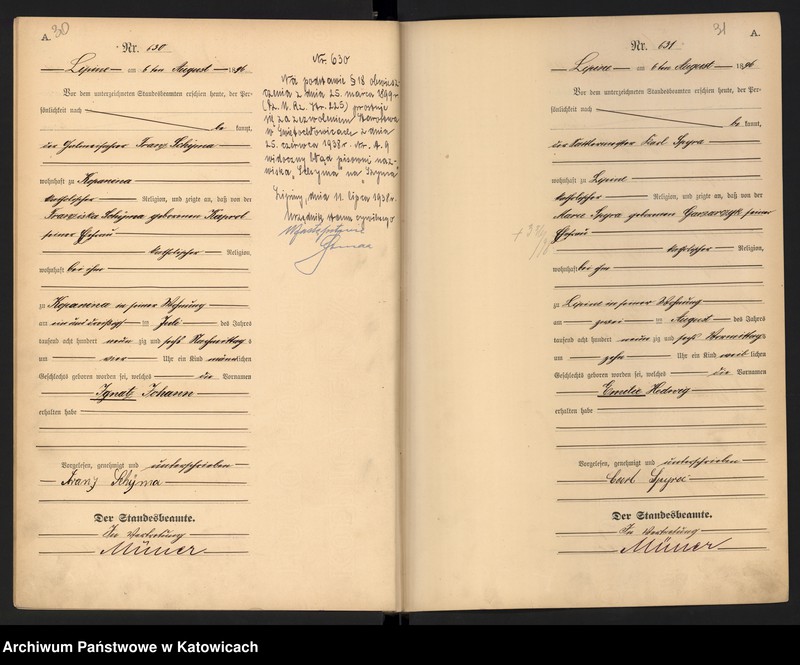 A.
30
Nr. 630
Lipine am 6ten August 1896
Vor dem unterzeichneten Standesbeamten erschien heute, der Per-
sönlichkeit nach
be kannt,
der Franz Schÿma
wohnhaft zu Kopanina
katholischer Religion, und zeigte an, daß von der
Franziska Schÿma geborenen
seiner Ehefrau
katholischer Religion,
wohnhaft bei ihm
zu Kopanina in seiner Wohnung
am ein und dreißigsten Juli des Jahres
tausend acht hundert neun zig und sechs Nachmittags
um vier Uhr ein Kind männlichen
Geschlechts geboren worden sei, welches die Vornamen
Ignatz Johann
erhalten habe
Vorgelesen, genehmigt und unterschrieben
Franz Schÿma
Der Standesbeamte.
In Vertretung
Nr. 630
Na podstawie § 18 obwiesz-
czenia z dnia 25. marca 1899 r.
(Dz. U. Rz. Str. 225) prostuje
się za zezwoleniem Starostwa
w Świętochłowicach z dnia
25. czerwca 1938 r. Nr.
widoczny błąd pisowni naz-
wiska, na
Lipiny, dnia 11. lipca 1938 r.
Urzędnik stanu cywilnego
W zastępstwie
31
A.
Nr. 631
Lipine am 6ten August 1896
Vor dem unterzeichneten Standesbeamten erschien heute, der Per-
sönlichkeit nach
be kannt,
der Karl Spyra
wohnhaft zu Lipine
katholischer Religion, und zeigte an, daß von der
Marie Spyra geborenen seiner
Ehefrau
katholischer Religion,
wohnhaft bei ihm
zu Lipine in seiner Wohnung
am zwei ten August des Jahres
tausend acht hundert neun zig und sechs Vormittags
um zehn Uhr ein Kind weib lichen
Geschlechts geboren worden sei, welches die Vornamen
Emilie Hedwig
erhalten habe
Vorgelesen, genehmigt und unterschrieben
Spyra
Der Standesbeamte.
In Vertretung
Archiwum Państwowe w Katowicach